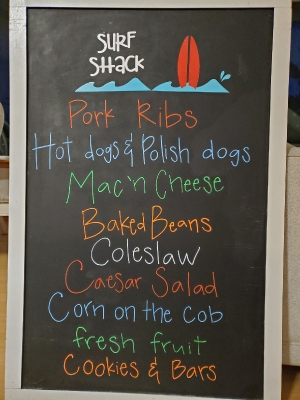 SURF
SHACK
Pork Ribs
Hot dogs & Polish dogs
Mac'n Cheese
Baked Beans
Coleslaw
Caesar Salad
Corn on the cob
fresh fruit
Cookies & Bars